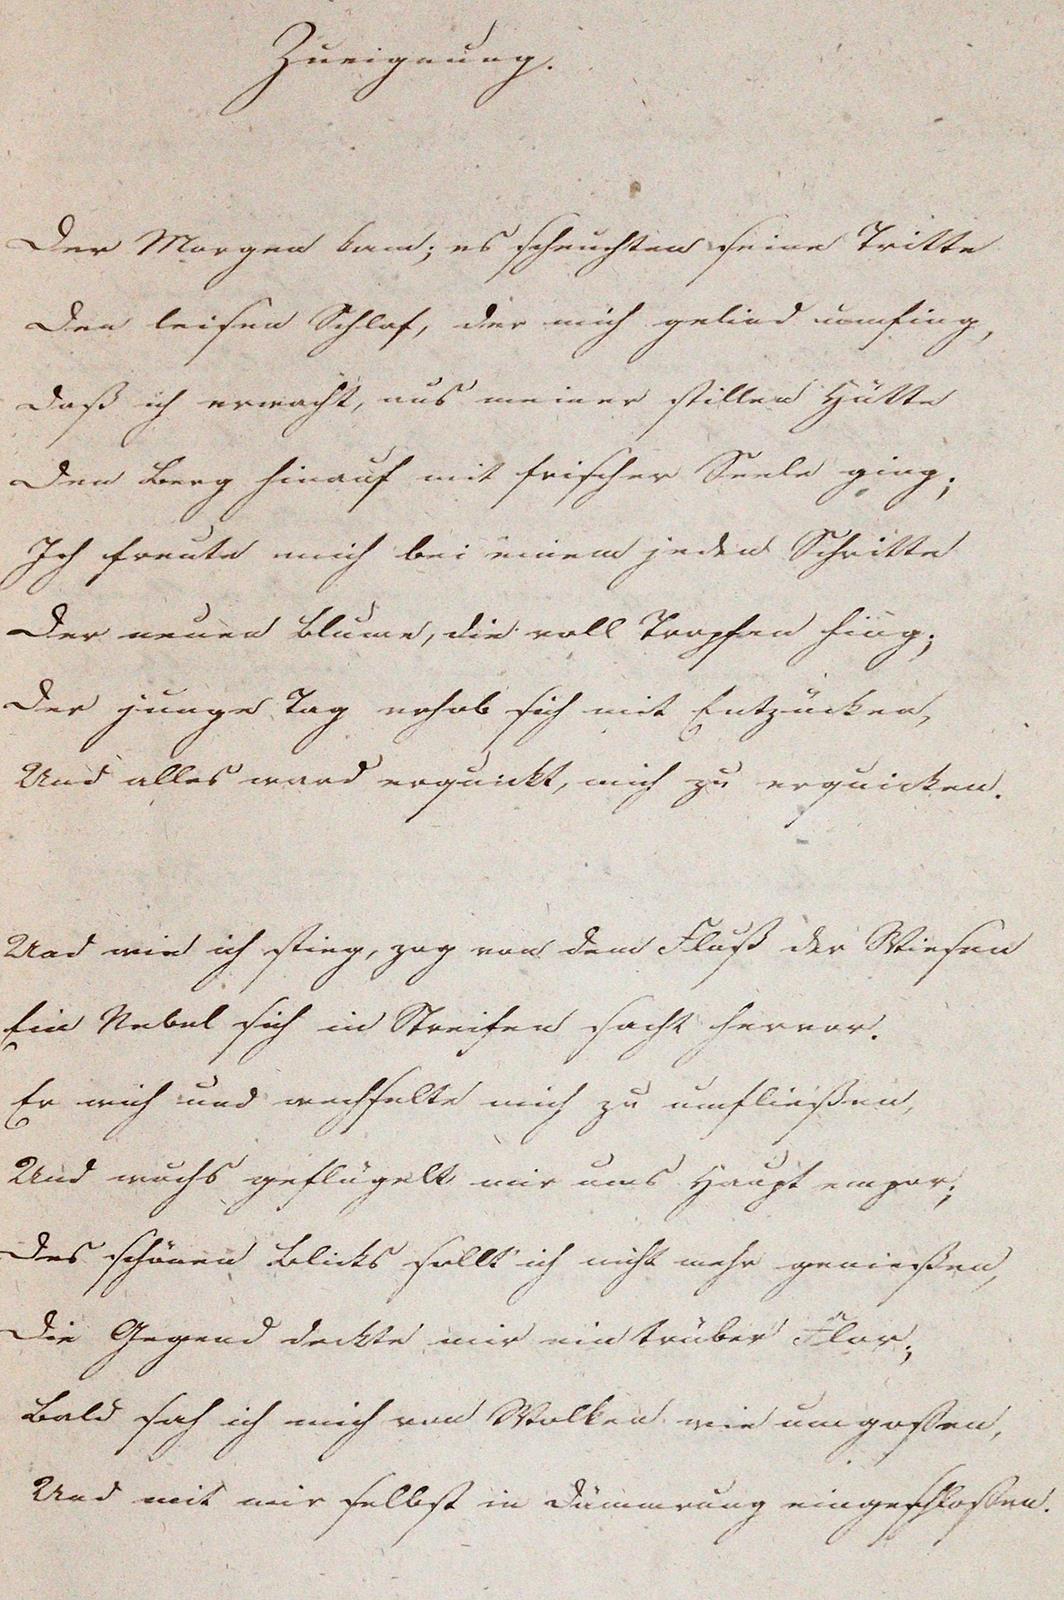 Zueignung.
Der Morgen kam; es scheuchten seine Tritte
Den leisen Schlaf, der mich gelind umfing,
Daß ich erwacht, aus meiner stillen Hütte
Den Berg hinauf mit frischer Seele ging;
Ich freute mich bei einem jeden Schritte
Der neuen Blume, die voll Tropfen hing;
Der junge Tag erhob sich mit Entzücken,
Und alles ward erquickt, mich zu erquicken.
Und wie ich stieg, zog von dem Fluß der Wiesen
Ein Nebel sich in Streifen sacht hervor.
Er wich und wechselte mich zu umfließen,
Und wuchs geflügelt mir ums Haupt empor;
Des schönen Blicks sollt' ich nicht mehr genießen,
Die Gegend deckte mir ein trüber Flor;
Bald sah ich mich von Wolken wie umgoßen,
Und mit mir selbst in Dämmrung eingeschloßen.